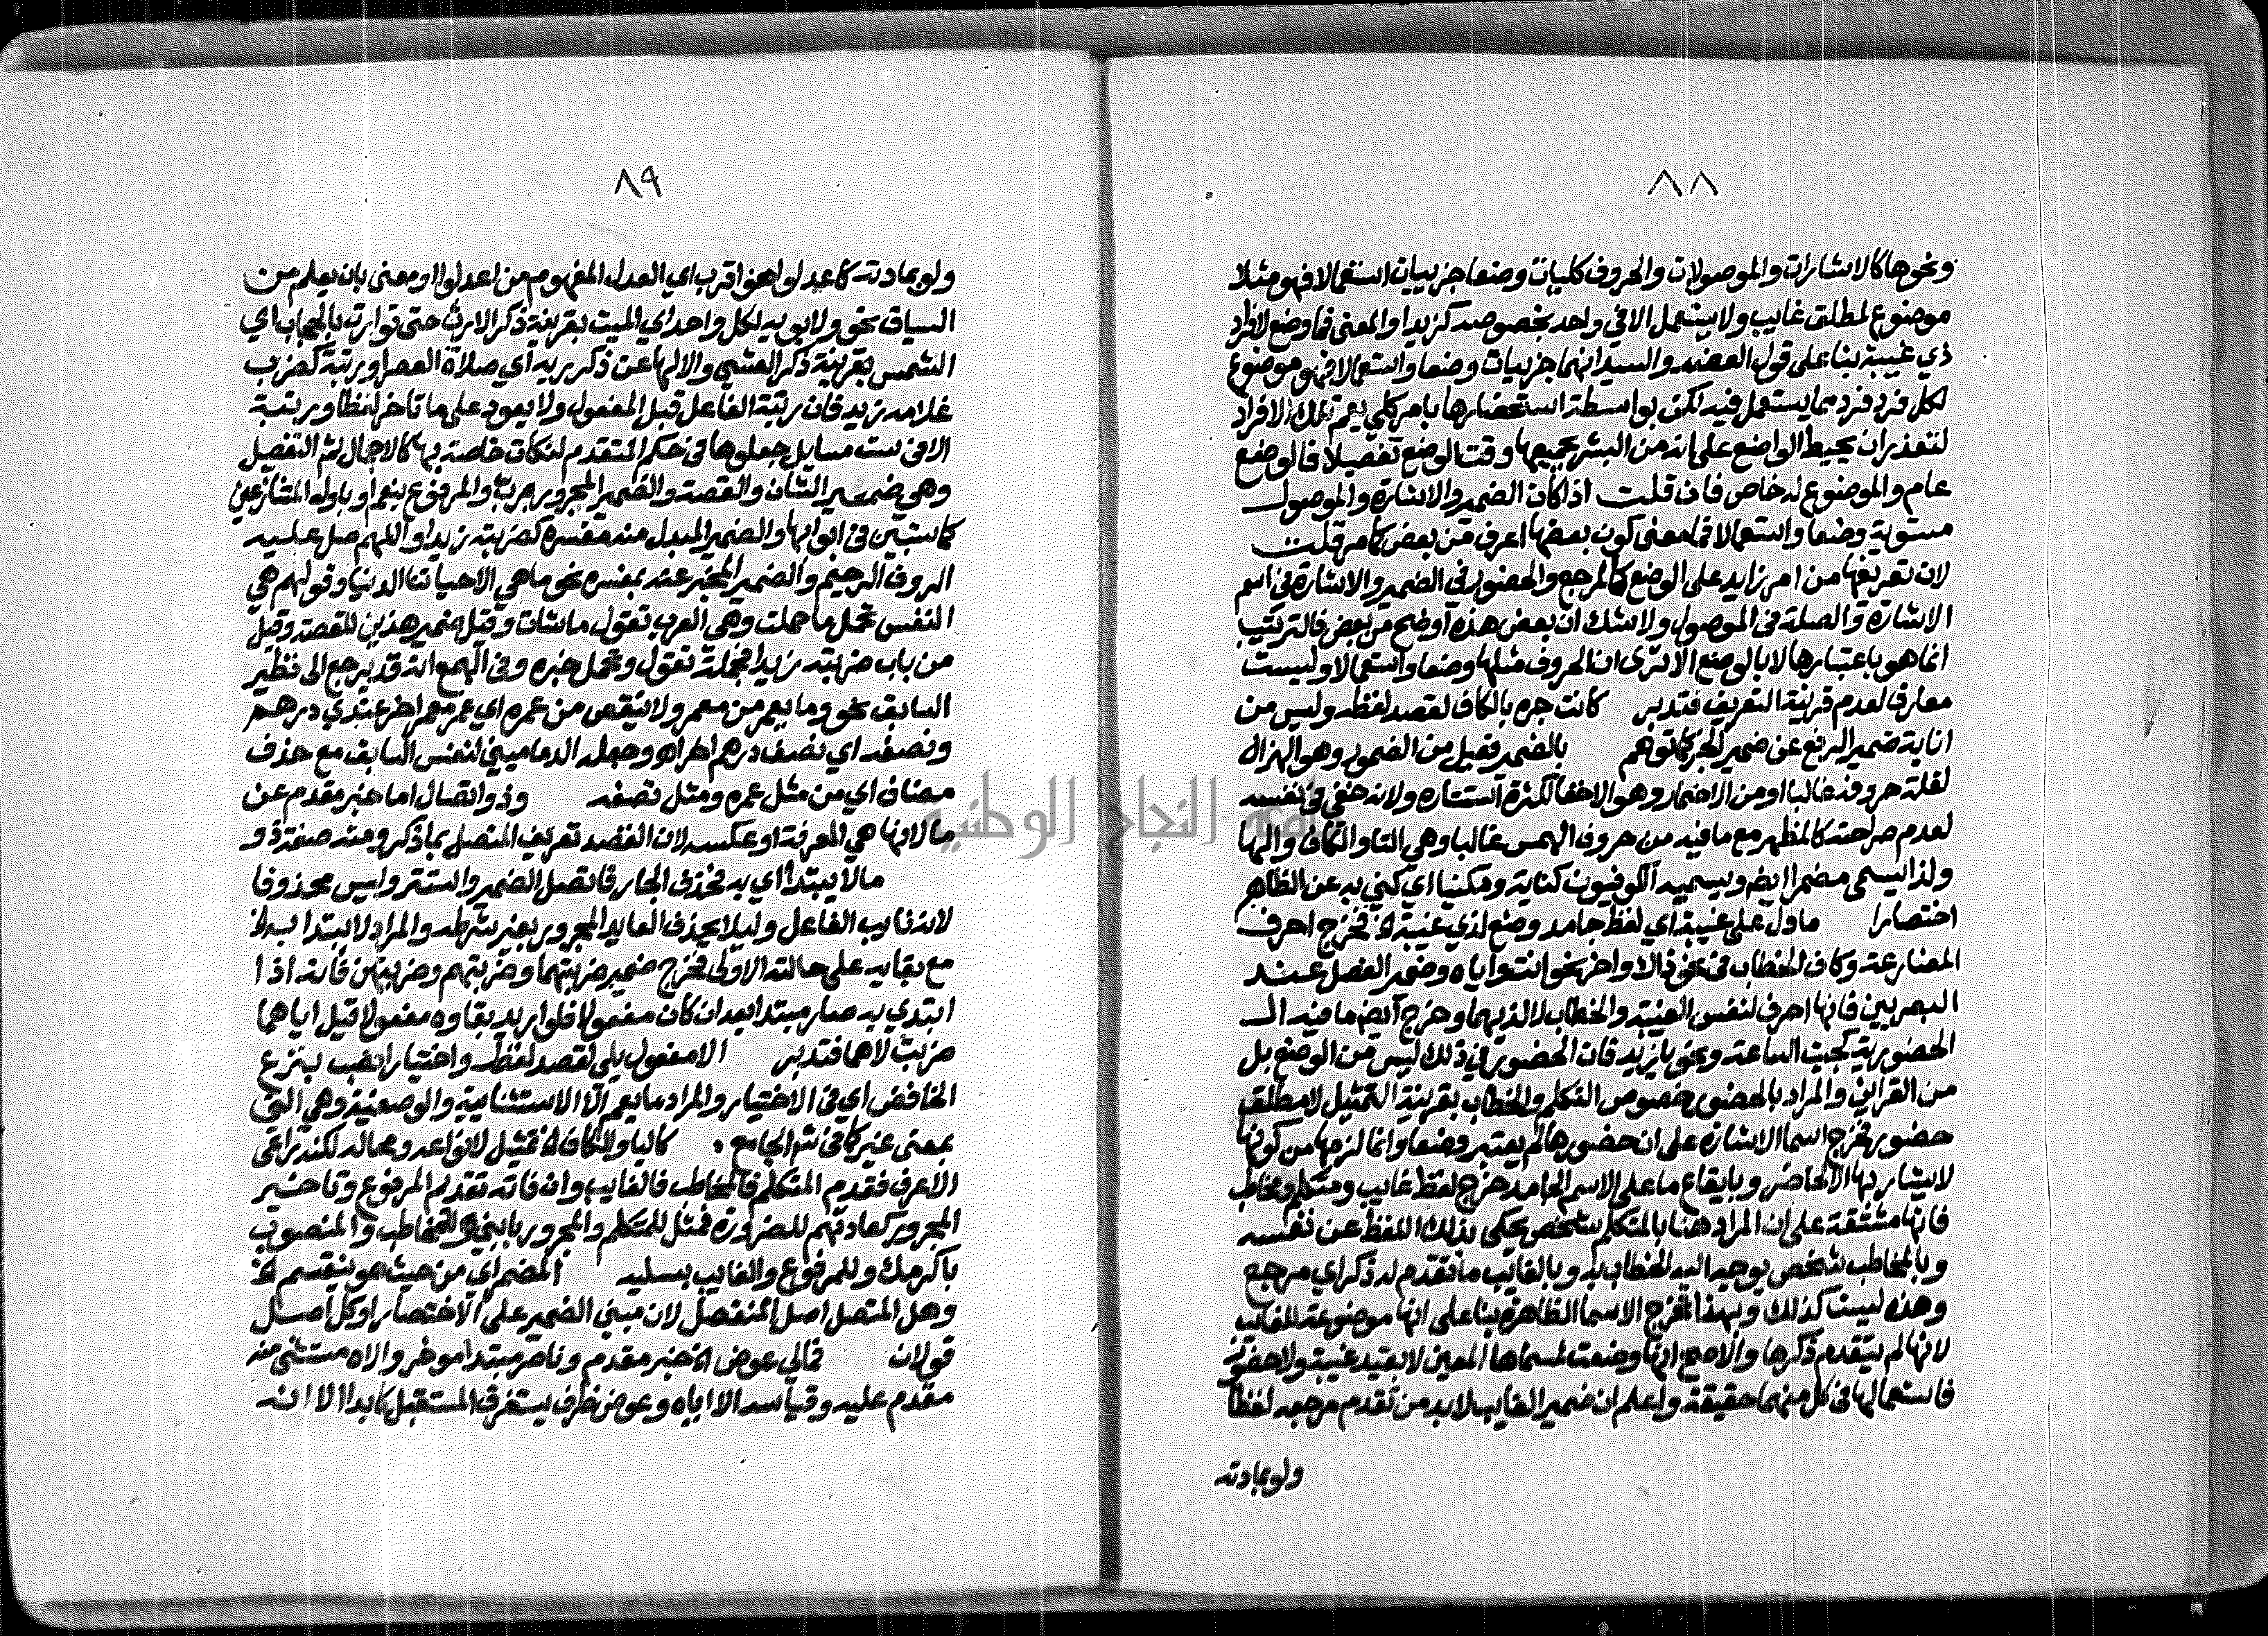 ٨٨
ونحوها كالاشارات والموصولات والحروف كليات وضعا جزييات استعمالا فهو مثلا
موضوع لمطلق غايب ولا يستعمل الا في واحد بخصوصه كزيد او المعنى فما وضع لافراد
ذي غيبة بنا على قول العضد والسيد انهما جزييات وضعا واستعمالا فهو موضوع
لكل فرد فرد مما يستعمل فيه لكن بواسطة استحضارها بامر كلي يعم تلك الافراد
لتعذر ان يحيط الواضع على انه من البشر بجميعها وقت الوضع تفصيلا فالوضع
عام والموضوع له خاص فان قلت اذا كان الضمير والاشارة والموصول
مستوية وضعا واستعمالا فما معنى كون بعضها اعرف من بعض كما مر قلت
لان تعريفها من امر زايد على الوضع كالمرجع والحضور في الضمير والاشارة في اسم
الاشارة والصلة في الموصول ولا شك ان بعض هذه اوضح من بعض فالترتيب
انما هو باعتبارها لا بالوضع الا ترى ان الحروف مثلها وضعا واستعمالا وليست
معارف لعدم قرينة التعريف فتدبر كانت جره بالكاف لقصد لفظه وليس من
انابة ضمير الرفع عن ضمير الجر كما توهم بالضمير فعيل من الضمور وهو الهزال
لقلة حروفه غالبا او من الاضمار وهو الاخفا لكثرة استتاره ولانه خفي في نفسه
لعدم صراحته كالمظهر مع ما فيه من حروف الهمس غالبا وهي التا والكاف والها
ولذا يسمى مضمرا ايضا ويسميه الكوفيون كناية ومكنيا اي كني به عن الظاهر
اختصارا ما دل على غيبة اي لفظ جامد وضع لذي غيبة الخ فخرج احرف
المضارعة وكاف الخطاب في نحو ذاك واخر نحو انت واياه وضمير الفصل عند
البصريين فانها احرف لنفس الغيبة والخطاب لا لذيهما وخرج ايضا ما فيه ال
الحضورية كجيت الساعة ونحو يا زيد فان الحضور في ذلك ليس من الوضع بل
من القراين والمراد بالحضور خصوص التكلم والخطاب بقرينة التمثيل لا مطلق
حضور فخرج اسما الاشارة على ان حضورها لم يعتبر وضعا وانما لزمها من كونها
لا يشار بها الا لحاضر وبايقاع ما على الاسم الجامد خرج لفظ غايب ومتكلم ومخاطب
فانها مشتقة على ان المراد هنا بالمتكلم شخص يحكي بذلك اللفظ عن نفسه
وبالمخاطب شخص يوجه اليه الخطاب به وبالغايب ما تقدم له ذكر اي مرجع
وهذه ليست كذلك وبهذا تخرج الاسما الظاهرة بنا على انها موضوعة للغايب
لانها لم يتقدم ذكرها والاصح انها وضعت لمسماها المعين لا بقيد غيبة ولا حضور
فاستعمالها في كل منهما حقيقة واعلم ان ضمير الغايب لا بد من تقدم مرجعه لفظا
ولو بمادته
٨٩
ولو بمادته كاعدلوا هو اقرب اي العدل المفهوم من اعدلوا او معنى بان يعلم من
السياق نحو ولابويه لكل واحد اي الميت بقرينة ذكر الارث حتى توارت بالحجاب اي
الشمس بقرينة ذكر العشي والالها عن ذكر ربه اي صلاة العصر او رتبة كضرب
غلامه زيد فان رتبة الفاعل قبل المفعول ولا يعود على ما تاخر لفظا ورتبة
الا في ست مسايل جعلوها في حكم المتقدم لنكات خاصة بها كالاجمال ثم التفصيل
وهي ضمير الشان والقصة والضمير المجرور برب والمرفوع بنعم او باول المتنازعين
كما ستبين في ابوابها والضمير المبدل منه مفسره كضربته زيدا واللهم صل عليه
الروف الرحيم والضمير المخبر عنه بمفسره نحو ما هي الا حياتنا الدنيا وقولهم هي
النفس تحمل ما حملت وهي العرب تقول ما شات وقيل ضمير هذين للقصة وقيل
من باب ضربته زيدا فجملة تقول وتحمل خبره وفي الهمع انه قد يرجع الى نظير
السابق نحو وما يعمر من معمر ولا ينقص من عمره اي عمر معمر اخر عندي درهم
ونصفه اي نصف درهم اخر اه وجعله الدماميني لنفس السابق مع حذف
مضاف اي من مثل عمره ومثل نصفه وذو اتصال اما خبر مقدم عن
ما لانها هي المعرفة او عكسه لان القصد تعريف المتصل بما ذكر ومنه صفة ذو
ما لا يبتدا اي به فحذف الجار فاتصل الضمير واستتر وليس محذوفا
لانه نايب الفاعل وليلا يحذف العايد المجرور بغير شرطه والمراد لا يبتدا به
مع بقايه على حالته الاولى فخرج ضمير ضربتهما وضربتهم وضربتهن فانه اذا
ابتدي به صار مبتدا بعد ان كان مفعولا فلو اريد بقاوه مفعولا قيل اياهما
ضربت لا هما فتدبر الا مفعول يلي لقصد لفظه واختيارا نصب بنزع
الخافض اي في الاختيار والمراد ما يعم الا الاستثنايية والوصفية وهي التي
بمعنى غير كما في شرح الجامع كاليا والكاف الخ تمثيل لانواعه ومحاله لكنه راعى
الاعرف فقدم المتكلم فالمخاطب فالغايب وان فاته تقديم المرفوع وتاخير
المجرور كعادتهم للضرورة فمثل للمتكلم والمجرور بابني وللمخاطب والمنصوب
باكرمك وللمرفوع والغايب بسليه المضمر اي من حيث هو ينقسم الخ
وهل المتصل اصل المنفصل لان مبنى الضمير على الاختصار او كل اصل
قولان فمالي عوض الخ خبر مقدم وناصر مبتدا موخر والاه مستثنى منه
مقدم عليه وقياسه الا اياه وعوض ظرف يستغرق المستقبل كابدا الا انه